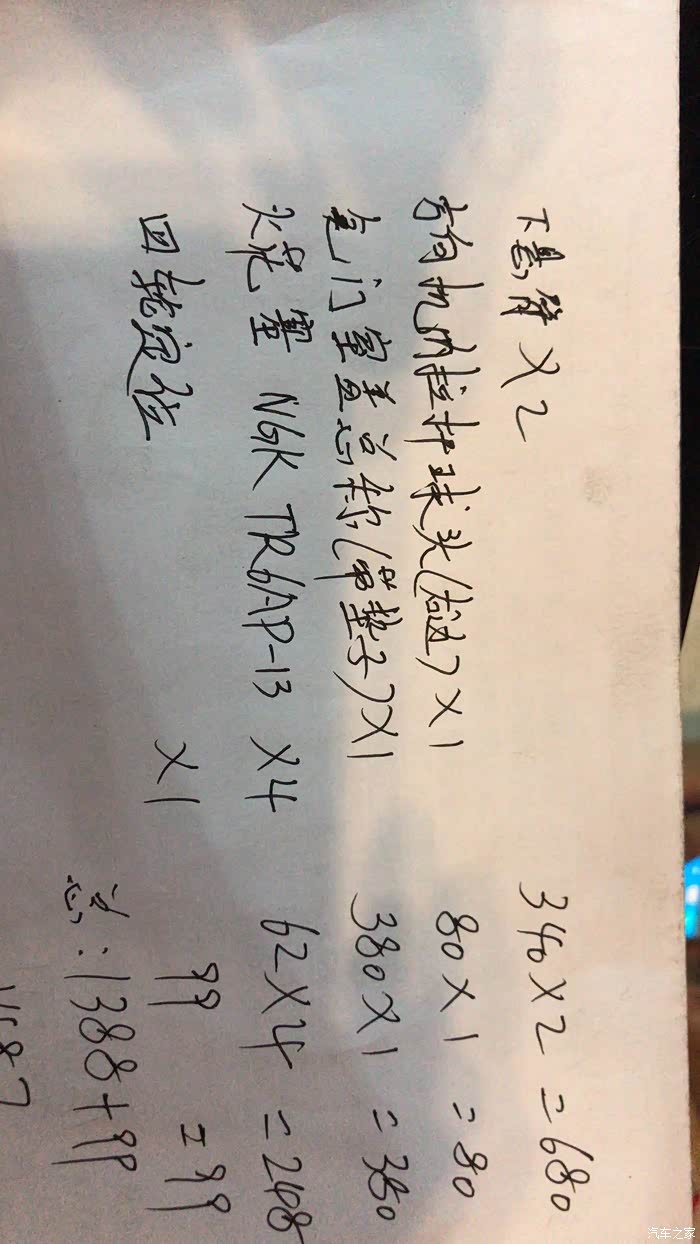 下悬臂 X2 340X2 =680
方向机内拉杆球头(右边) X1 80X1 =80
气门室盖总称(带垫子) X1 380X1 =380
火花塞 NGK TR6AP-13 X4 62X4 =248
四轮定位 X1 99 =99
总:1388+99
1487
汽车之家